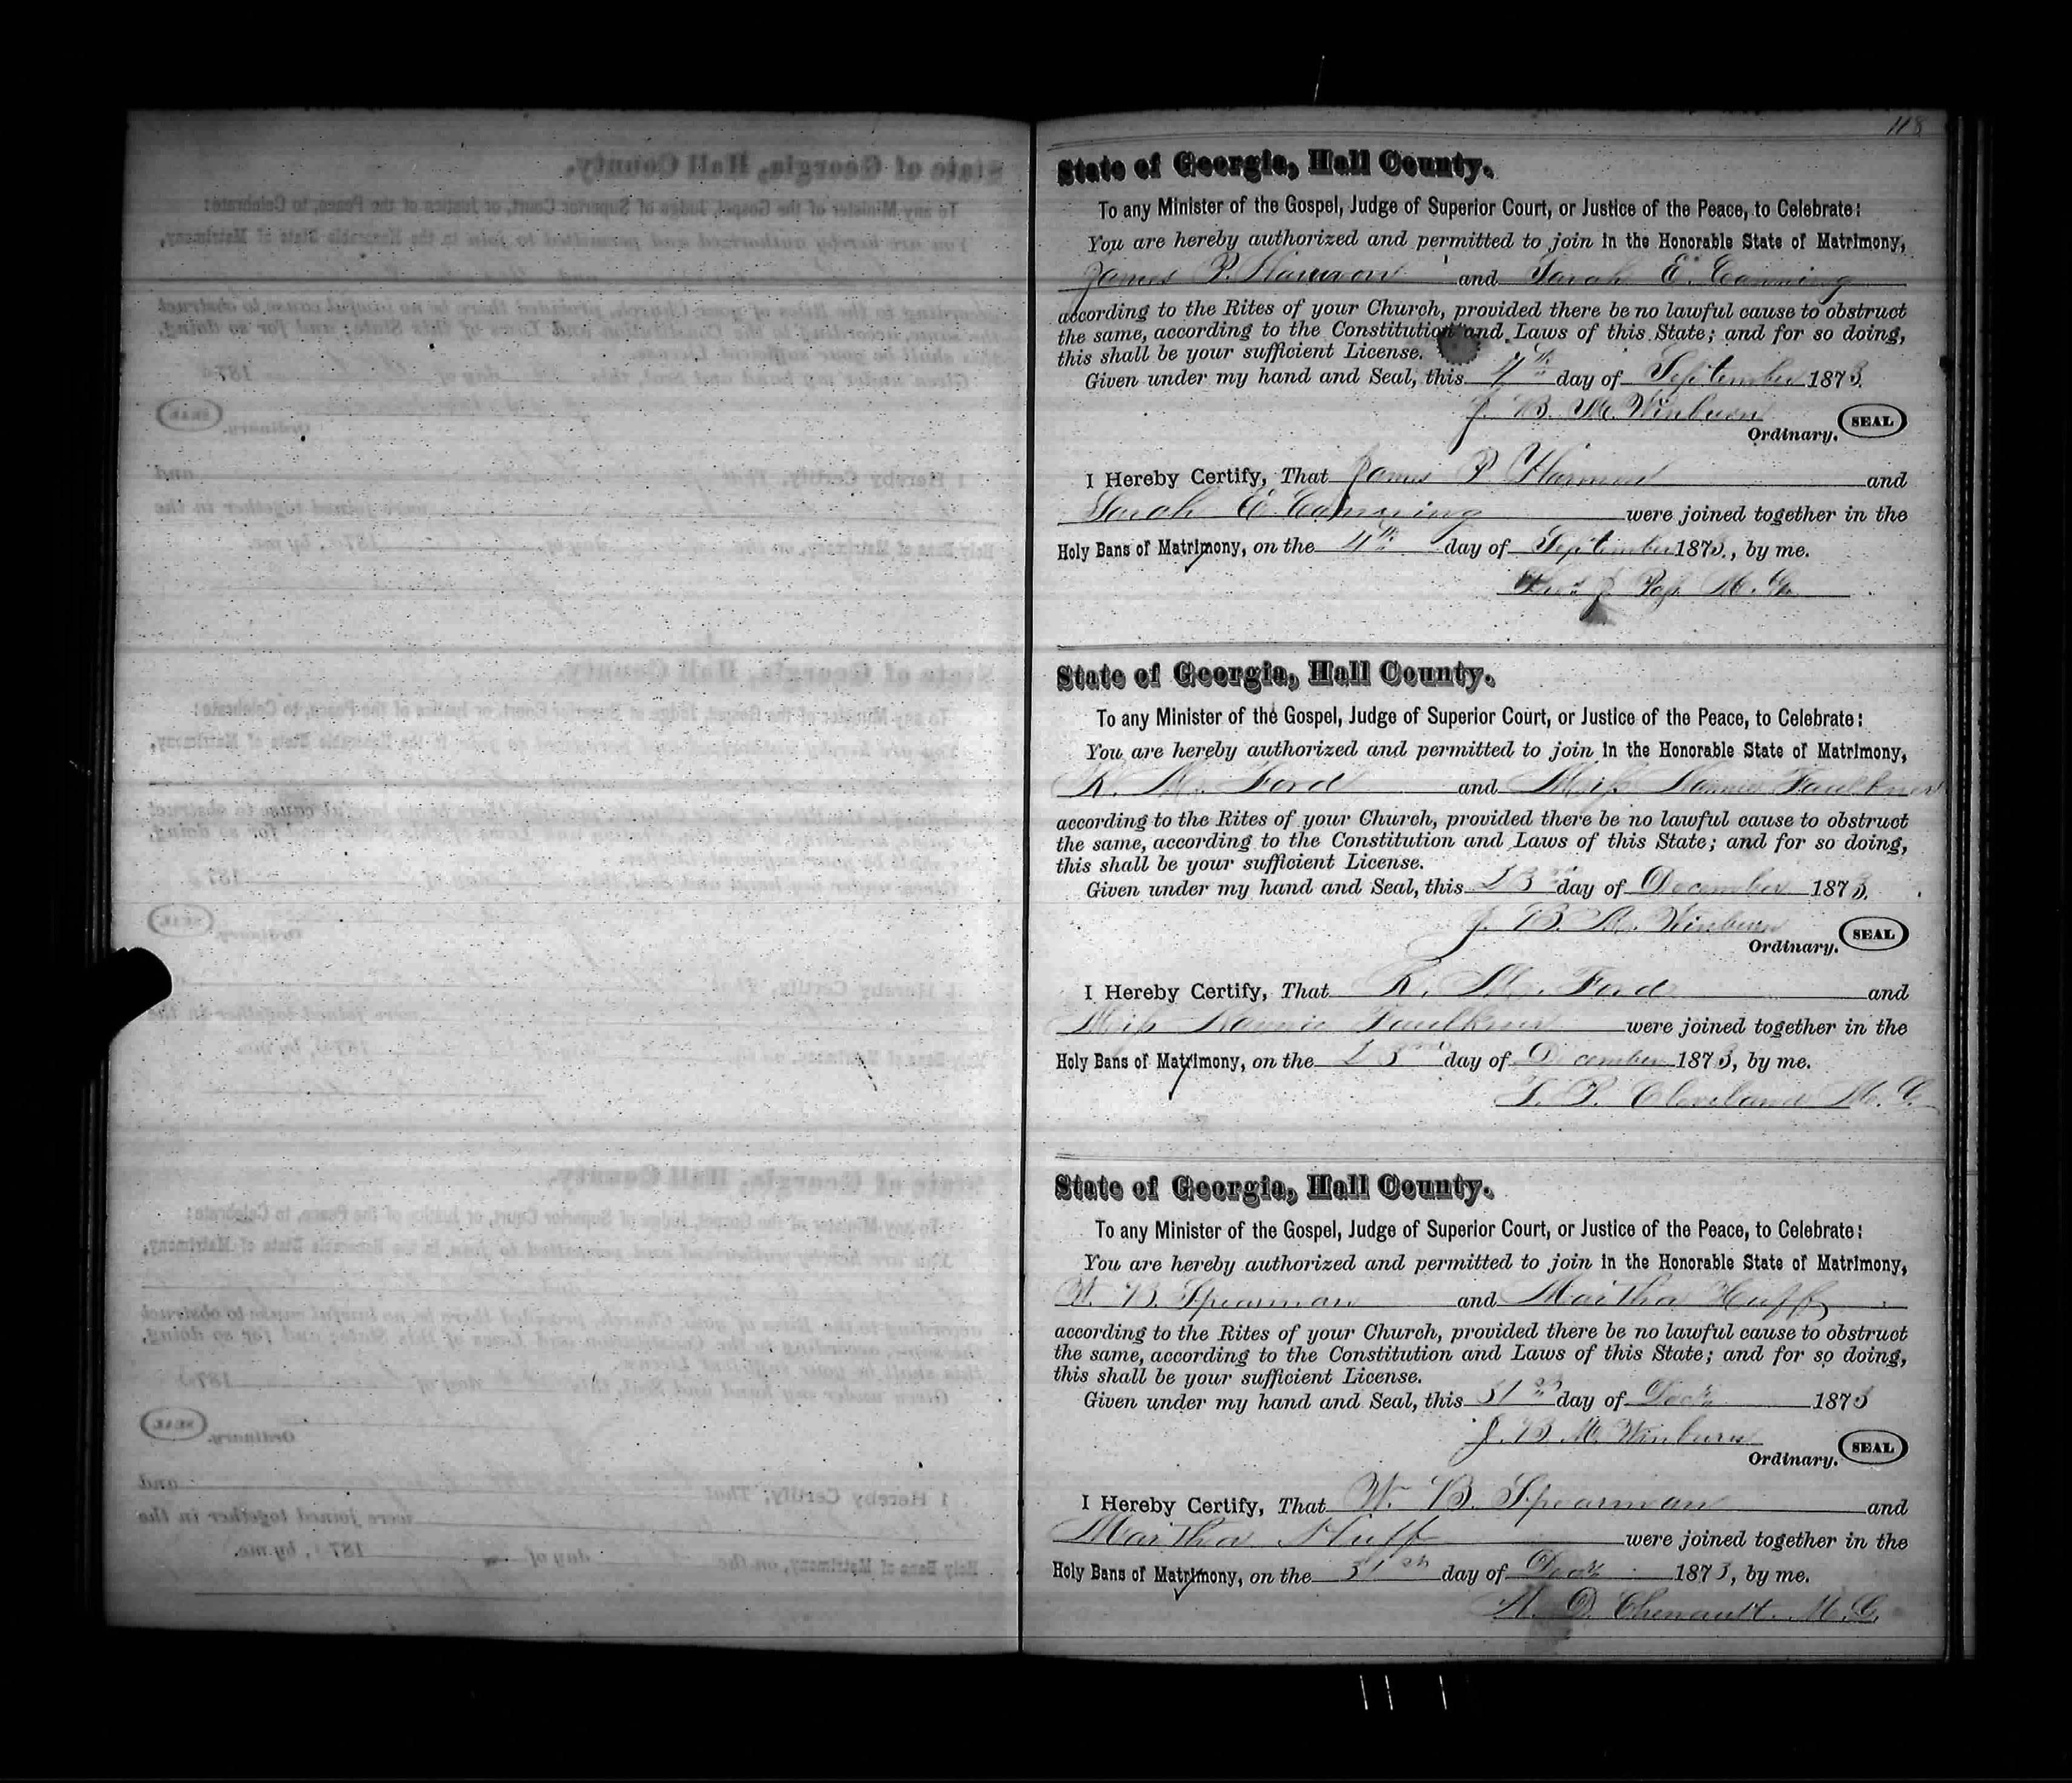 118
State of Georgia, Hall County.
To any Minister of the Gospel, Judge of Superior Court, or Justice of the Peace, to Celebrate:
You are hereby authorized and permitted to join in the Honorable State of Matrimony,
James P. Harmon and Sarah E. Canning
according to the Rites of your Church, provided there be no lawful cause to obstruct
the same, according to the Constitution and Laws of this State; and for so doing,
this shall be your sufficient License.
Given under my hand and Seal, this 4th day of September 1873.
J. B. M. Winburn
Ordinary. SEAL
I Hereby Certify, That James P. Harmon and
Sarah E. Canning were joined together in the
Holy Bans of Matrimony, on the 4th day of September 1873., by me.
M. G.
State of Georgia, Hall County.
To any Minister of the Gospel, Judge of Superior Court, or Justice of the Peace, to Celebrate:
You are hereby authorized and permitted to join in the Honorable State of Matrimony,
R. M. Ford and Miss Nannie Faulkner
according to the Rites of your Church, provided there be no lawful cause to obstruct
the same, according to the Constitution and Laws of this State; and for so doing,
this shall be your sufficient License.
Given under my hand and Seal, this 23rd day of December 1873.
J. B. M. Winburn
Ordinary. SEAL
I Hereby Certify, That R. M. Ford and
Miss Nannie Faulkner were joined together in the
Holy Bans of Matrimony, on the 23rd day of December 1873, by me.
T. P. Cleveland M. G.
State of Georgia, Hall County.
To any Minister of the Gospel, Judge of Superior Court, or Justice of the Peace, to Celebrate:
You are hereby authorized and permitted to join in the Honorable State of Matrimony,
W. B. Spearman and Martha Huff
according to the Rites of your Church, provided there be no lawful cause to obstruct
the same, according to the Constitution and Laws of this State; and for so doing,
this shall be your sufficient License.
Given under my hand and Seal, this 31st day of Decr 1873
J. B. M. Winburn
Ordinary. SEAL
I Hereby Certify, That W. B. Spearman and
Martha Huff were joined together in the
Holy Bans of Matrimony, on the 31st day of Decr 1873, by me.
D. Chenault. M. G.